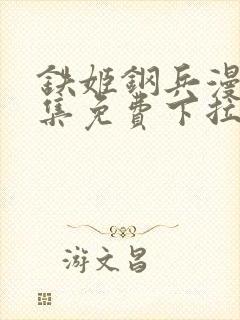 鉄姬鋼兵漫
集免費下拉
游文昌